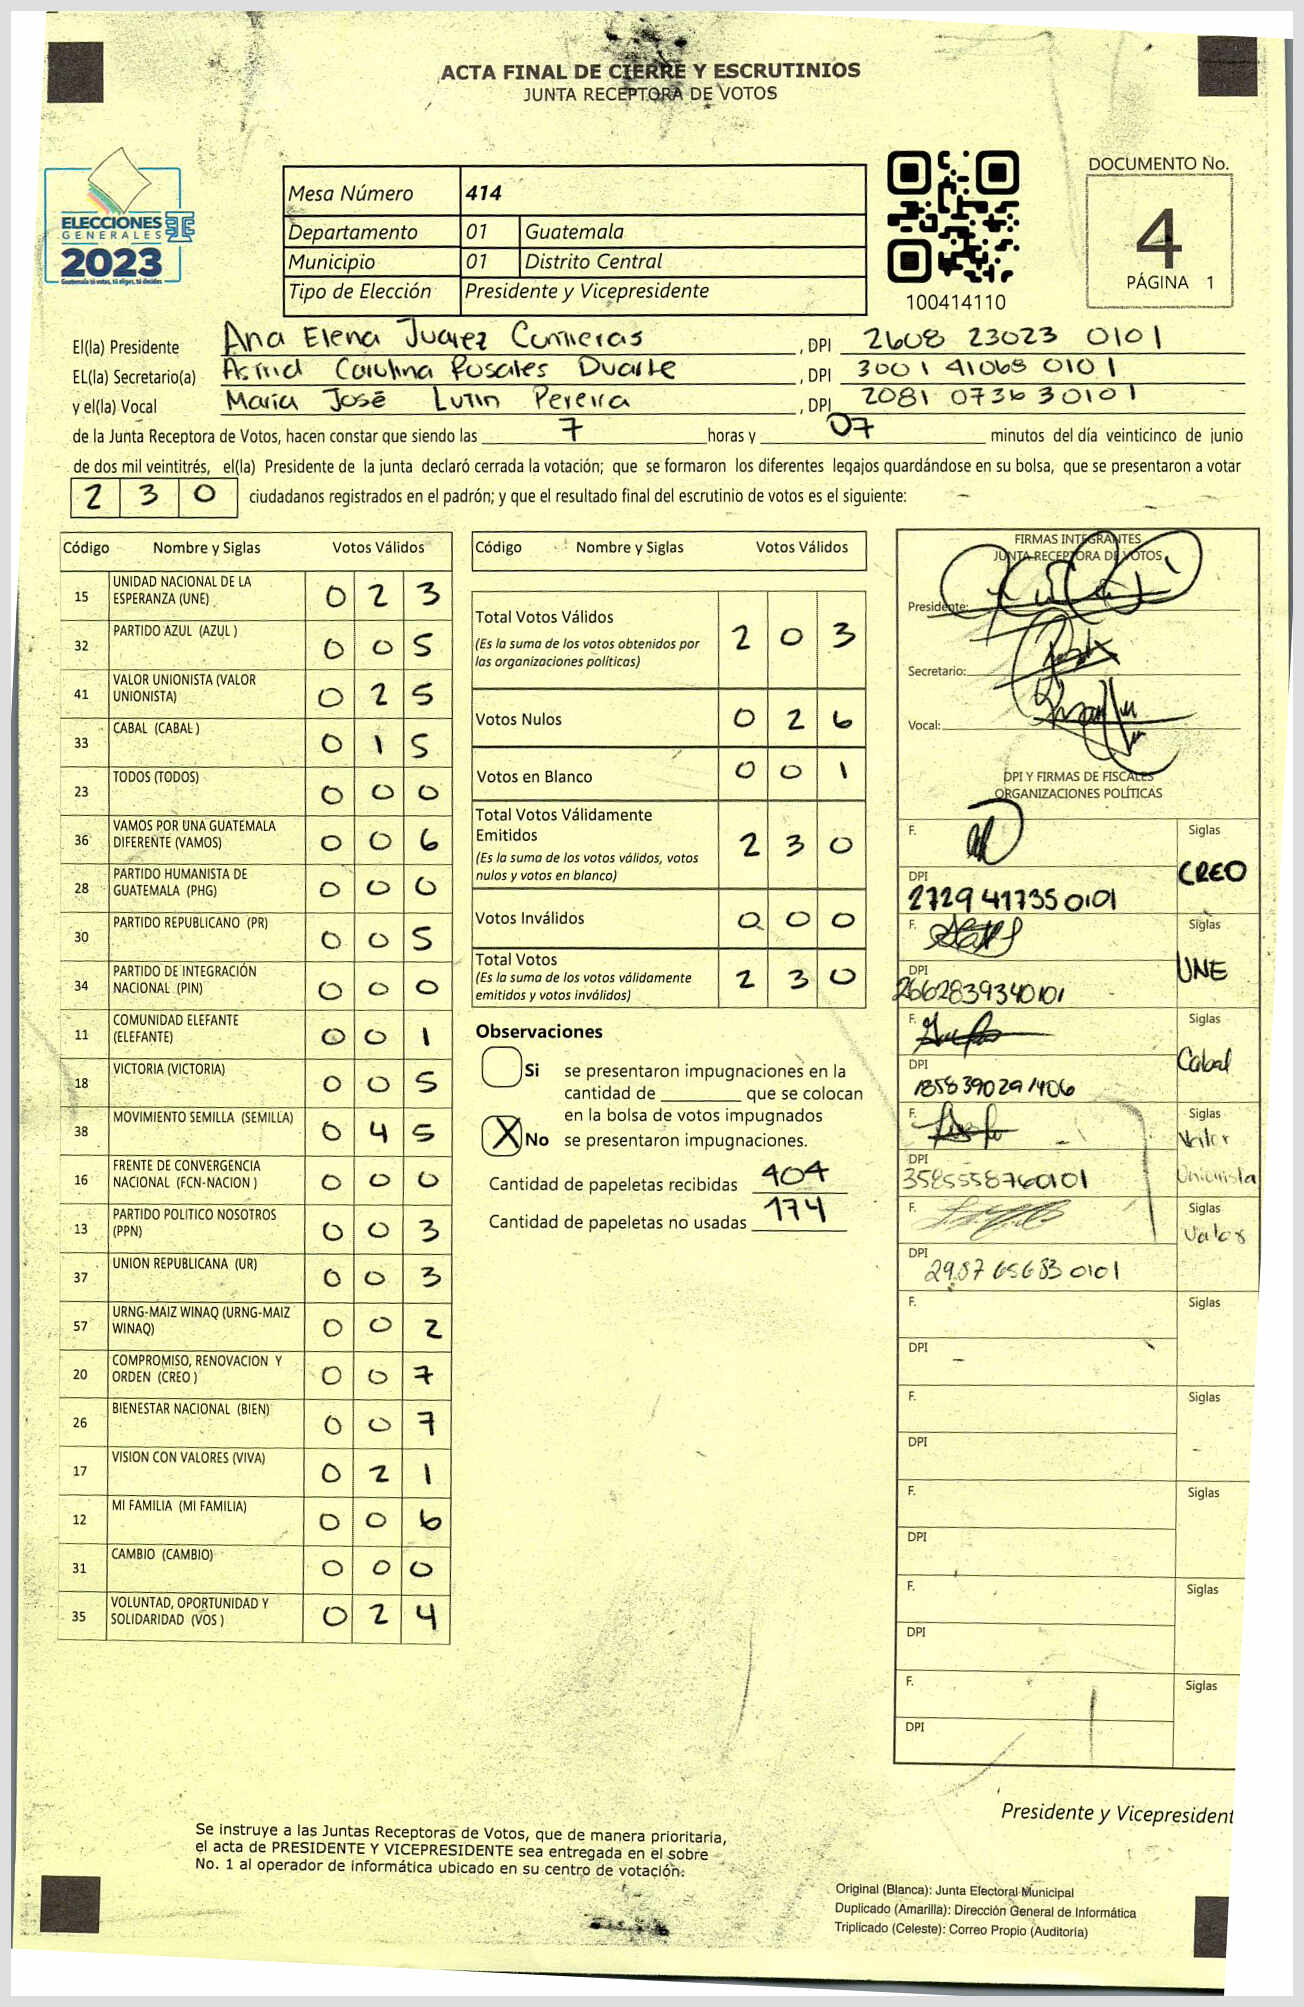 ACTA FINAL DE CIERRE Y ESCRUTINIOS
JUNTA RECEPTORA DE VOTOS
ELECCIONES
GENERALES
2023
Guatemala tú votas, tú eliges, tú decides
Mesa Número 414
Departamento 01 Guatemala
Municipio 01 Distrito Central
Tipo de Elección Presidente y Vicepresidente
100414110
DOCUMENTO No.
4
PÁGINA 1
El(la) Presidente Ana Elena Juarez Contreras, DPI 2608 23023 0101
EL(la) Secretario(a) Astrid Carolina Rosales Duarte, DPI 3001 41068 0101
y el(la) Vocal Maria José Lutin Pereira, DPI 2081 07363 0101
de la Junta Receptora de Votos, hacen constar que siendo las 7 horas y 07 minutos del día veinticinco de junio
de dos mil veintitrés, el(la) Presidente de la junta declaró cerrada la votación; que se formaron los diferentes legajos guardándose en su bolsa, que se presentaron a votar
230 ciudadanos registrados en el padrón; y que el resultado final del escrutinio de votos es el siguiente:
Código Nombre y Siglas Votos Válidos
15 UNIDAD NACIONAL DE LA ESPERANZA (UNE) 0 2 3
32 PARTIDO AZUL (AZUL ) 0 0 5
41 VALOR UNIONISTA (VALOR UNIONISTA) 0 2 5
33 CABAL (CABAL ) 0 1 5
23 TODOS (TODOS) 0 0 0
36 VAMOS POR UNA GUATEMALA DIFERENTE (VAMOS) 0 0 6
28 PARTIDO HUMANISTA DE GUATEMALA (PHG) 0 0 0
30 PARTIDO REPUBLICANO (PR) 0 0 5
34 PARTIDO DE INTEGRACIÓN NACIONAL (PIN) 0 0 0
11 COMUNIDAD ELEFANTE (ELEFANTE) 0 0 1
18 VICTORIA (VICTORIA) 0 0 5
38 MOVIMIENTO SEMILLA (SEMILLA) 0 4 5
16 FRENTE DE CONVERGENCIA NACIONAL (FCN-NACION ) 0 0 0
13 PARTIDO POLITICO NOSOTROS (PPN) 0 0 3
37 UNION REPUBLICANA (UR) 0 0 3
57 URNG-MAIZ WINAQ (URNG-MAIZ WINAQ) 0 0 2
20 COMPROMISO, RENOVACION Y ORDEN (CREO ) 0 0 7
26 BIENESTAR NACIONAL (BIEN) 0 0 7
17 VISION CON VALORES (VIVA) 0 2 1
12 MI FAMILIA (MI FAMILIA) 0 0 6
31 CAMBIO (CAMBIO) 0 0 0
35 VOLUNTAD, OPORTUNIDAD Y SOLIDARIDAD (VOS ) 0 2 4
Código Nombre y Siglas Votos Válidos
Total Votos Válidos 2 0 3
(Es la suma de los votos obtenidos por
las organizaciones políticas)
Votos Nulos 0 2 6
Votos en Blanco 0 0 1
Total Votos Válidamente
Emitidos 2 3 0
(Es la suma de los votos válidos, votos
nulos y votos en blanco)
Votos Inválidos 0 0 0
Total Votos 2 3 0
(Es la suma de los votos válidamente
emitidos y votos inválidos)
Observaciones
Si se presentaron impugnaciones en la
cantidad de ________ que se colocan
en la bolsa de votos impugnados
X No se presentaron impugnaciones.
Cantidad de papeletas recibidas 404
Cantidad de papeletas no usadas 174
FIRMAS INTEGRANTES
JUNTA RECEPTORA DE VOTOS
Presidente:
Secretario:
Vocal:
DPI Y FIRMAS DE FISCALES
ORGANIZACIONES POLÍTICAS
F. Siglas
CREO
DPI
2729 41735 0101
F. Siglas
UNE
DPI
2662839340101
F. Siglas
Cabal
DPI
1858390291406
F. Siglas
Valor
Unionista
DPI
3585558760101
F. Siglas
Valor
DPI
2987 65683 0101
F. Siglas
DPI
F. Siglas
DPI
F. Siglas
DPI
F. Siglas
DPI
F. Siglas
DPI
Presidente y Vicepresident
Se instruye a las Juntas Receptoras de Votos, que de manera prioritaria,
el acta de PRESIDENTE Y VICEPRESIDENTE sea entregada en el sobre
No. 1 al operador de informática ubicado en su centro de votación.
Original (Blanca): Junta Electoral Municipal
Duplicado (Amarilla): Dirección General de Informática
Triplicado (Celeste): Correo Propio (Auditoría)